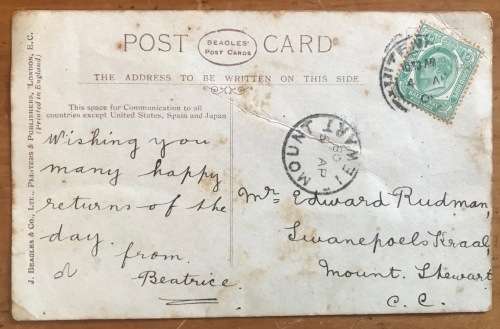 POST CARD
BEAGLES'
POST CARDS
THE ADDRESS TO BE WRITTEN ON THIS SIDE
This space for Communication to all
countries except United States, Spain and Japan
J. BEAGLES & CO., LTD., PRINTERS & PUBLISHERS, LONDON, E.C.
(Printed in England)
Wishing you
many happy
returns of the
day.
from
Beatrice.
MOUNT STEWART
AP
Mr Edward Rudman,
Swanepoels Kraal,
Mount Stewart
C.C.